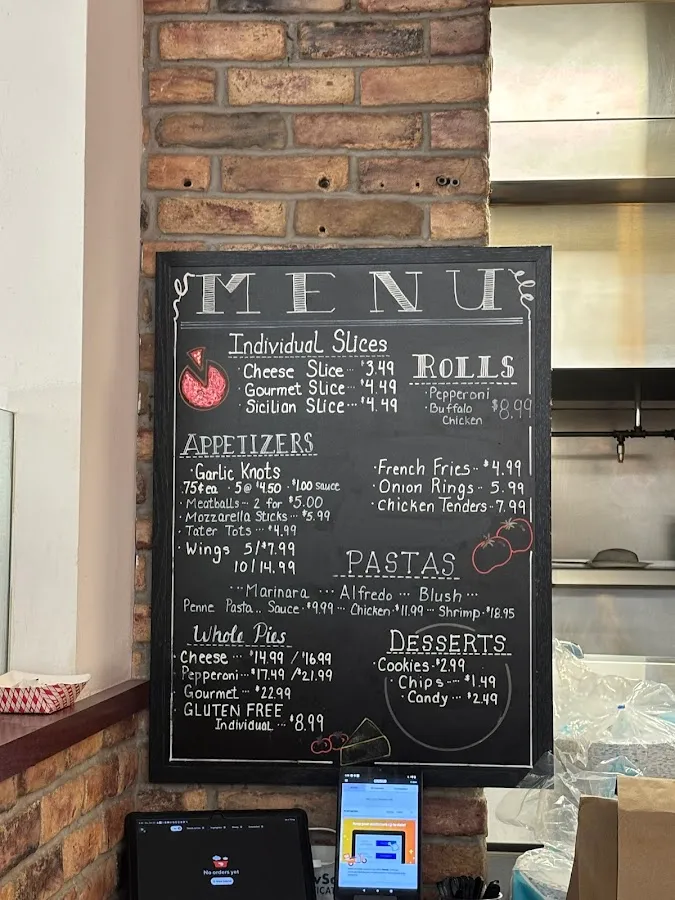 MENU
Individual Slices
· Cheese Slice ··· $3.49
· Gourmet Slice ··· $4.49
· Sicilian Slice ··· $4.49
ROLLS
· Pepperoni
· Buffalo Chicken $8.99
APPETIZERS
· Garlic Knots
.75¢ea · 5@ $4.50 · $1.00 sauce
· Meatballs -- 2 for $5.00
· Mozzarella Sticks ·· $5.99
· Tater Tots ··· $4.99
· Wings 5/$7.99
10/14.99
· French Fries -- $4.99
· Onion Rings -- 5.99
· Chicken Tenders - 7.99
PASTAS
··· Marinara ··· Alfredo ··· Blush ···
Penne Pasta... Sauce · $9.99 --- Chicken · $11.99 --- Shrimp · $18.95
Whole Pies
· Cheese ··· $14.99 / $16.99
· Pepperoni ·· $17.49 / $21.99
· Gourmet ·· $22.99
· GLUTEN FREE
Individual ... $8.99
DESSERTS
· Cookies · $2.99
· Chips --- $1.49
· Candy ··· $2.49
No orders yet